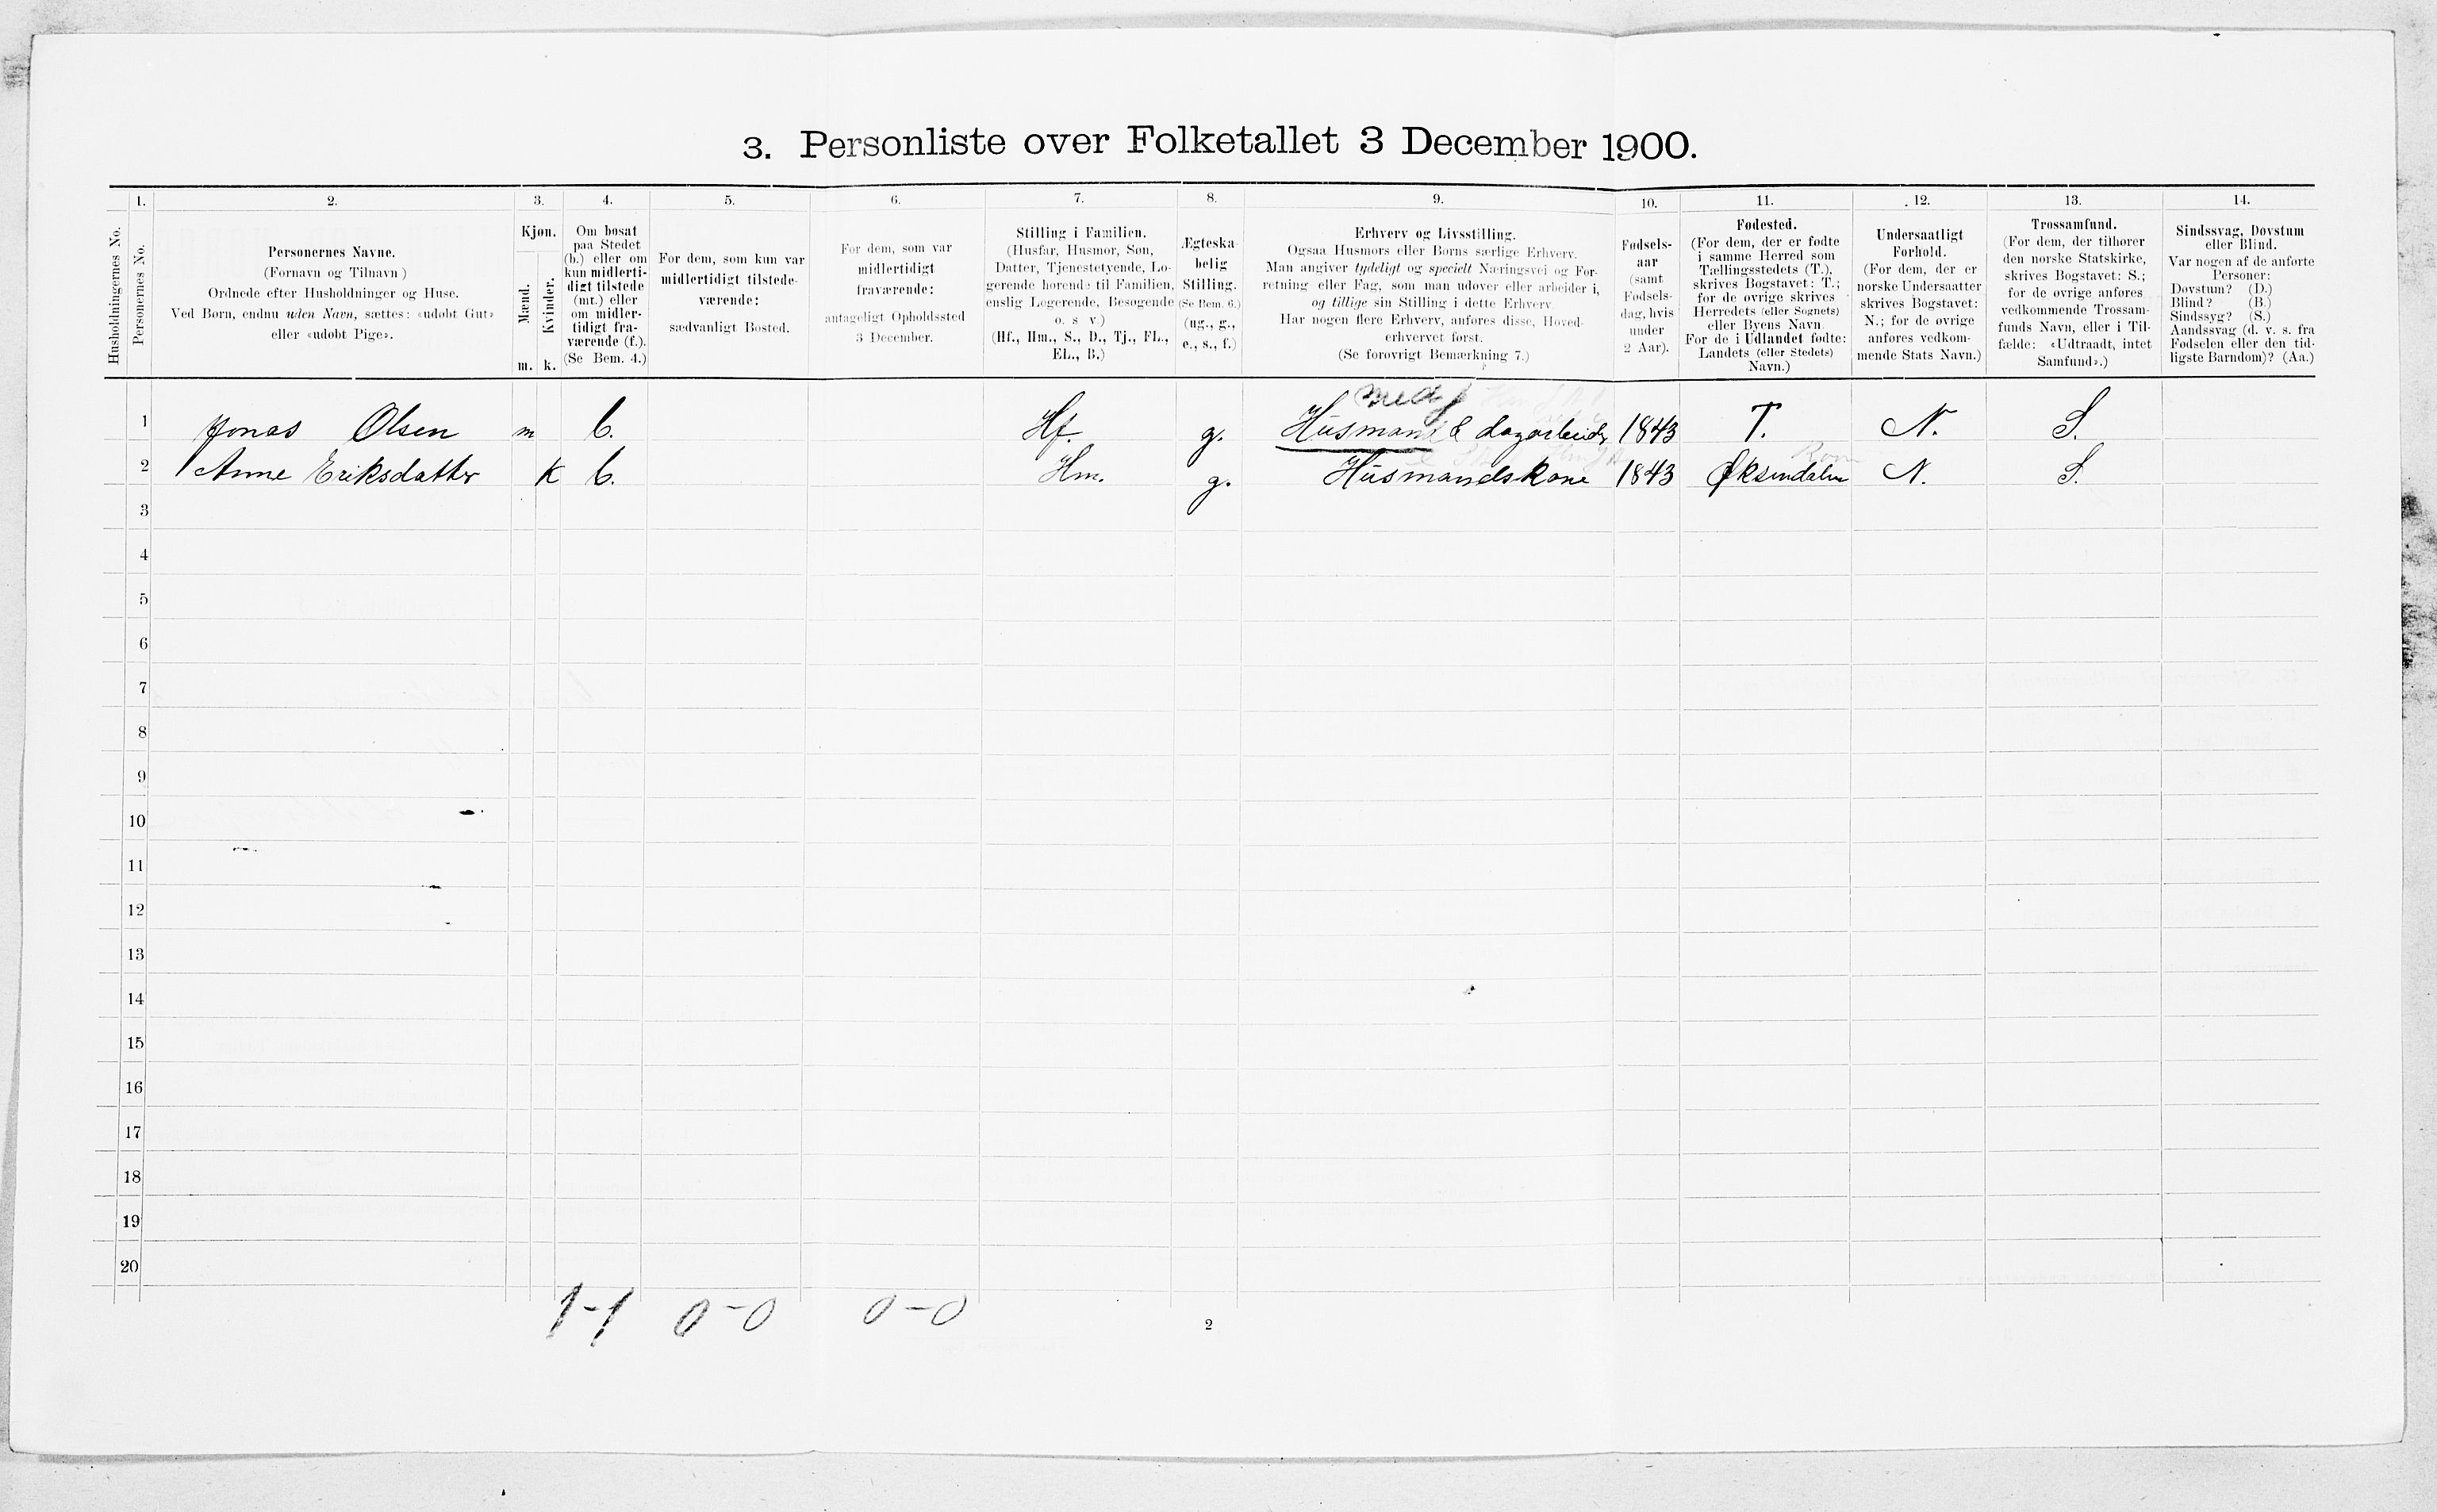 3. Personliste over Folketallet 3 December 1900.
Husholdningernes No.
1.
Personernes No.
2.
Personernes Navne.
(Fornavn og Tilnavn)
Ordnede efter Husholdninger og Huse.
Ved Børn, endnu uden Navn, sættes: «udøbt Gut»
eller «udøbt Pige».
3.
Kjøn.
Mænd.
Kvinder.
m. k.
4.
Om bosat
paa Stedet
(b.) eller om
kun midlerti-
digt tilstede
(mt.) eller
om midler-
tidigt fra-
værende (f.).
(Se Bem. 4.)
5.
For dem, som kun var
midlertidigt tilstede-
værende:
sædvanligt Bosted.
6.
For dem, som var
midlertidigt
fraværende:
antageligt Opholdssted
3 December.
7.
Stilling i Familien.
(Husfar, Husmor, Søn,
Datter, Tjenestetyende, Lo-
gerende hørende til Familien,
enslig Logerende, Besøgende
o. s. v.)
(Hf., Hm., S., D., Tj., FL.,
EL., B.)
8.
Ægteska-
belig
Stilling.
(Se Bem. 6.)
(ug., g.,
e., s., f.)
9.
Erhverv og Livsstilling.
Ogsaa Husmors eller Børns særlige Erhverv.
Man angiver tydeligt og specielt Næringsvei og For-
retning eller Fag, som man udøver eller arbeider i,
og tillige sin Stilling i dette Erhverv.
Har nogen flere Erhverv, anføres disse, Hoved-
erhvervet først.
(Se forøvrigt Bemærkning 7.)
10.
Fødsels-
aar
(samt
Fødsels-
dag, hvis
under
2 Aar).
11.
Fødested.
(For dem, der er fødte
i samme Herred som
Tællingsstedets (T.),
skrives Bogstavet: T.;
for de øvrige skrives
Herredets (eller Sognets)
eller Byens Navn.
For de i Udlandet fødte:
Landets (eller Stedets)
Navn.)
12.
Undersaatligt
Forhold.
(For dem, der er
norske Undersaatter
skrives Bogstavet:
N.; for de øvrige
anføres vedkom-
mende Stats Navn.)
13.
Trossamfund.
(For dem, der tilhører
den norske Statskirke,
skrives Bogstavet: S.;
for de øvrige anføres
vedkommende Trossam-
funds Navn, eller i Til-
fælde: «Udtraadt, intet
Samfund».)
14.
Sindssvag, Døvstum
eller Blind.
Var nogen af de anførte
Personer:
Døvstum? (D.)
Blind? (B.)
Sindssyg? (S.)
Aandssvag (d. v. s. fra
Fødselen eller den tid-
ligste Barndom)? (Aa.)
med j
1 Jonas Olsen m b. Hf. g. Husmand & dagarbeider 1843 T. N. S.
2 Anne Eriksdatter k b. Hm. g. Husmandskone 1843 Øksendalen N. S.
3
4
5
6
7
8
9
10
11
12
13
14
15
16
17
18
19
20
1-1 0-0 0-0
2